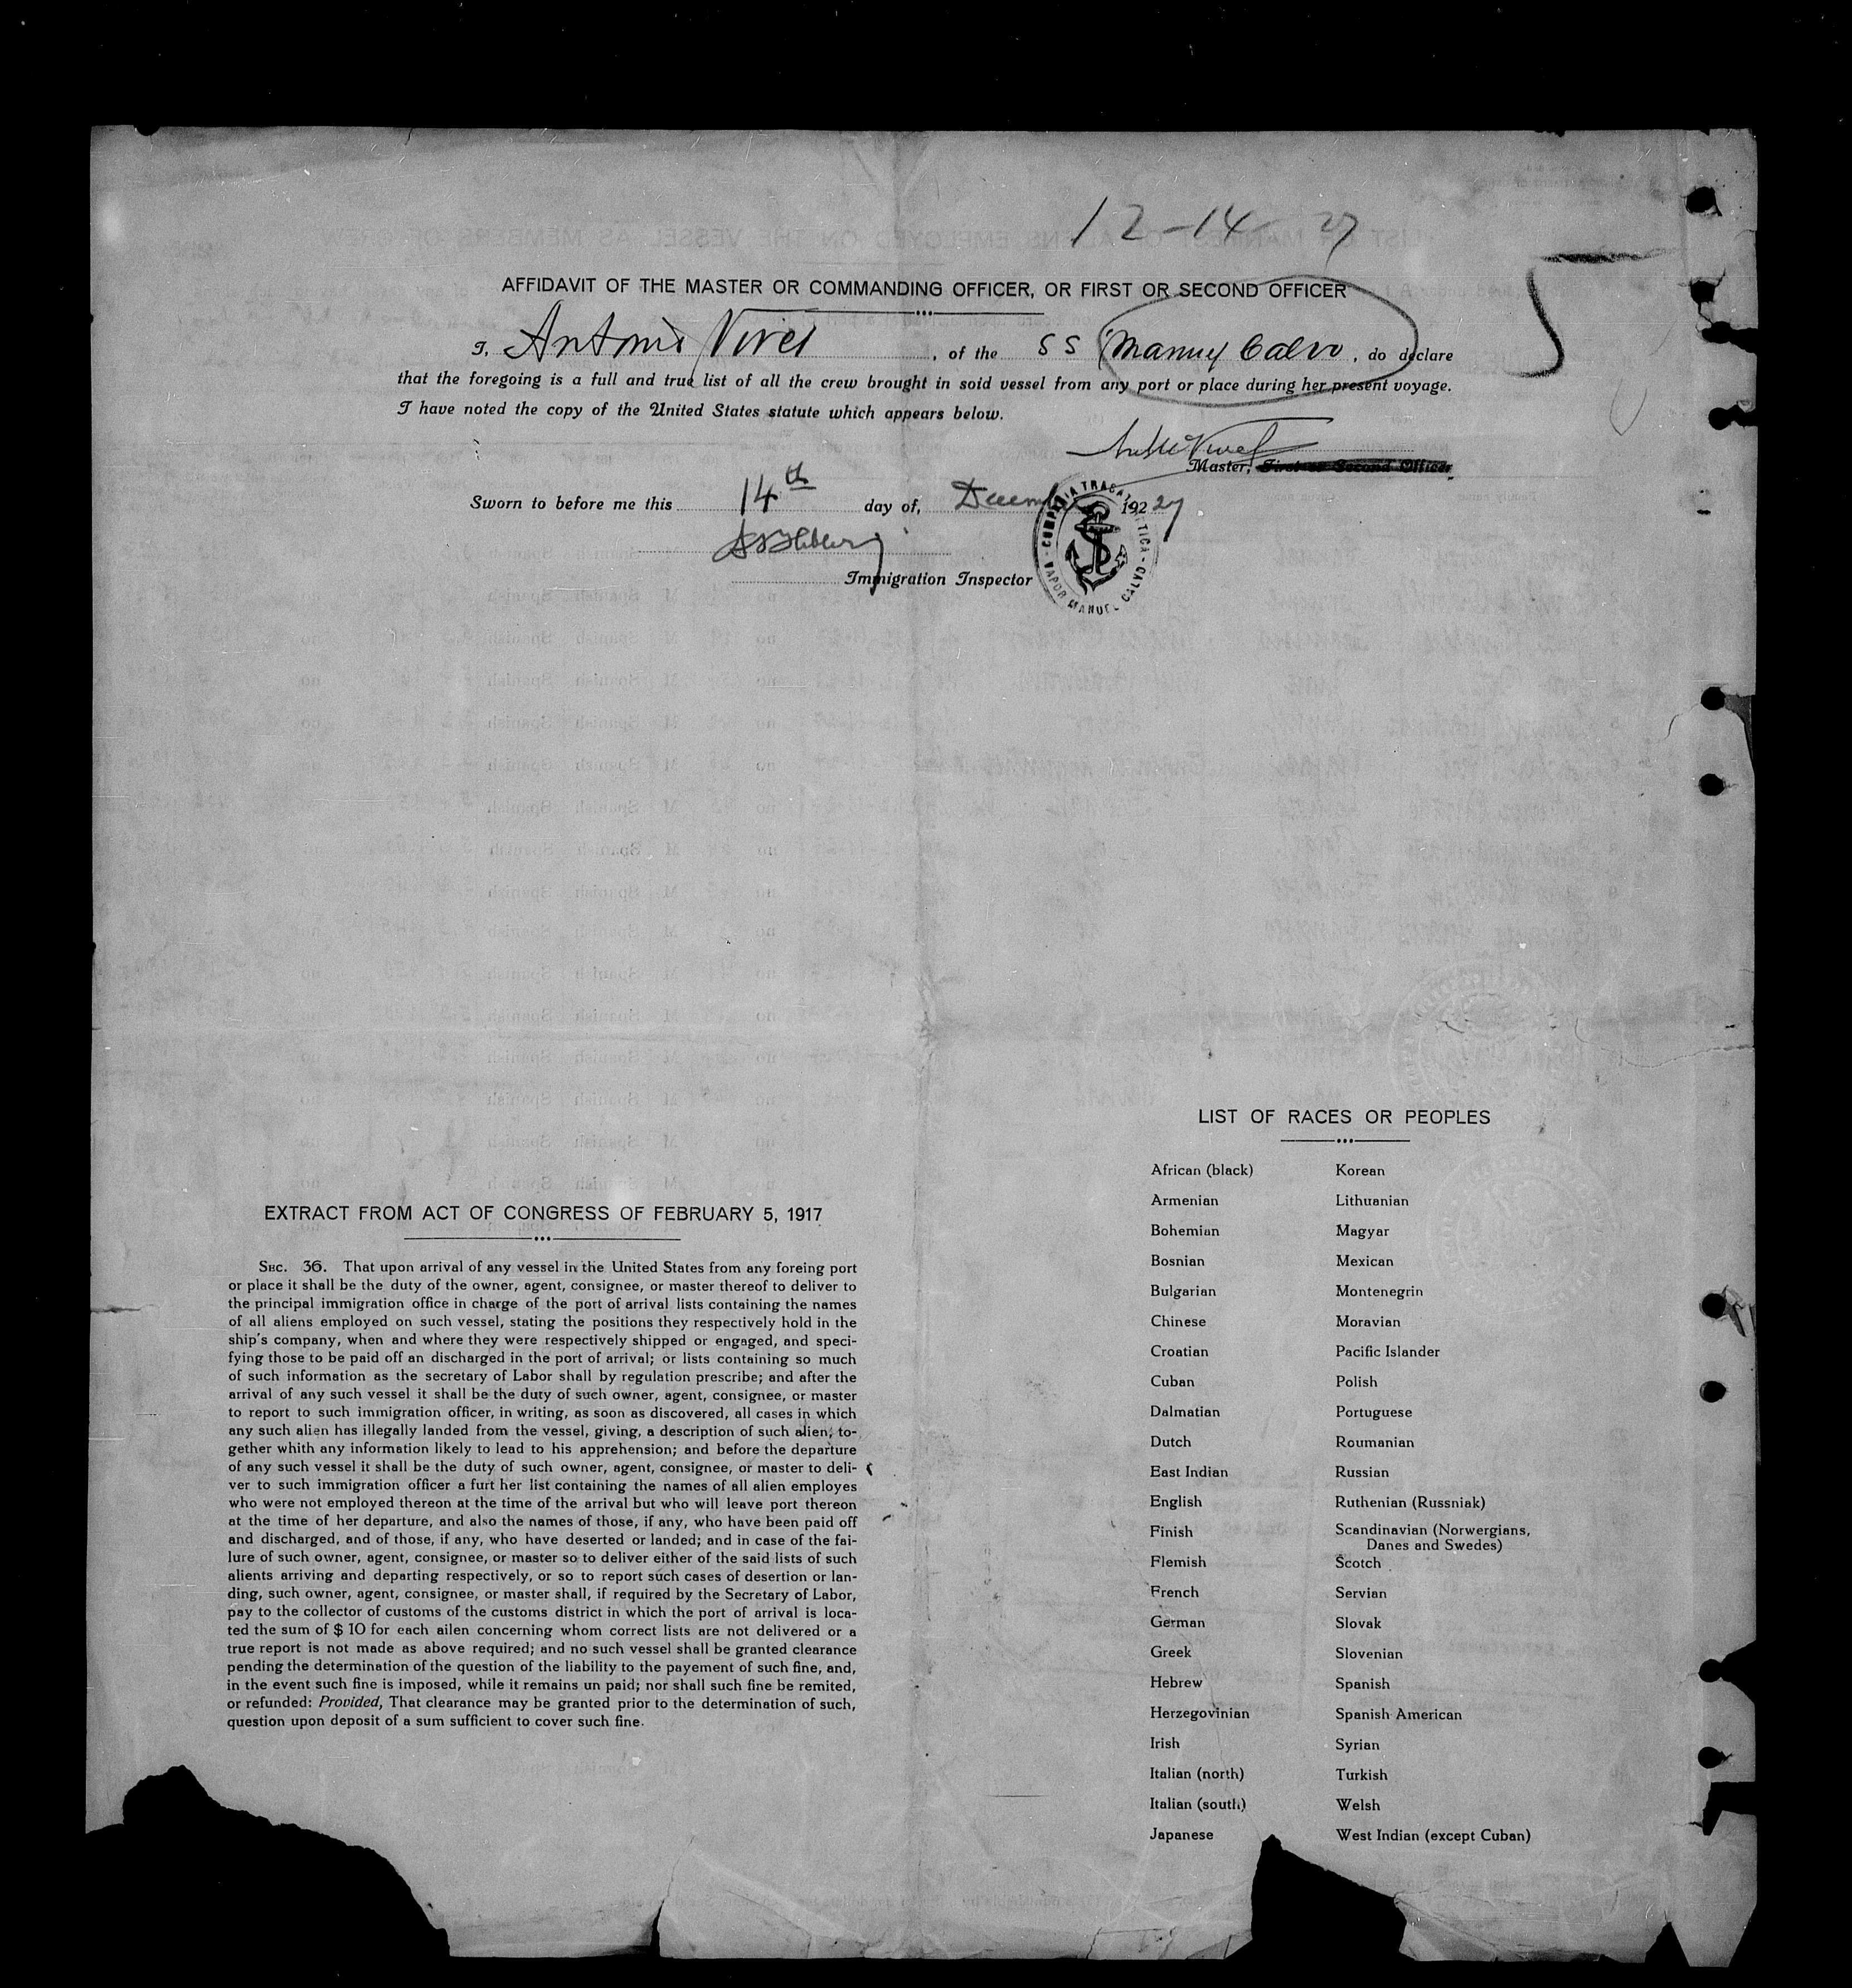 12-14-27
5
AFFIDAVIT OF THE MASTER OR COMMANDING OFFICER, OR FIRST OR SECOND OFFICER
I, Antonio Vives, of the SS Manuel Calvo, do declare
that the foregoing is a full and true list of all the crew brought in soid vessel from any port or place during her present voyage.
I have noted the copy of the United States statute which appears below.
Master, First or Second Officer
Sworn to before me this 14th day of, December 192 27
Immigration Inspector
COMPAÑIA TRASATLANTICA - VAPOR MANUEL CALVO -
EXTRACT FROM ACT OF CONGRESS OF FEBRUARY 5, 1917
SEC. 36. That upon arrival of any vessel in the United States from any foreing port
or place it shall be the duty of the owner, agent, consignee, or master thereof to deliver to
the principal immigration office in charge of the port of arrival lists containing the names
of all aliens employed on such vessel, stating the positions they respectively hold in the
ship's company, when and where they were respectively shipped or engaged, and speci-
fying those to be paid off an discharged in the port of arrival; or lists containing so much
of such information as the secretary of Labor shall by regulation prescribe; and after the
arrival of any such vessel it shall be the duty of such owner, agent, consignee, or master
to report to such immigration officer, in writing, as soon as discovered, all cases in which
any such alien has illegally landed from the vessel, giving, a description of such alien, to-
gether whith any information likely to lead to his apprehension; and before the departure
of any such vessel it shall be the duty of such owner, agent, consignee, or master to deli-
ver to such immigration officer a furt her list containing the names of all alien employes
who were not employed thereon at the time of the arrival but who will leave port thereon
at the time of her departure, and also the names of those, if any, who have been paid off
and discharged, and of those, if any, who have deserted or landed; and in case of the fai-
lure of such owner, agent, consignee, or master so to deliver either of the said lists of such
alients arriving and departing respectively, or so to report such cases of desertion or lan-
ding, such owner, agent, consignee, or master shall, if required by the Secretary of Labor,
pay to the collector of customs of the customs district in which the port of arrival is loca-
ted the sum of $ 10 for each ailen concerning whom correct lists are not delivered or a
true report is not made as above required; and no such vessel shall be granted clearance
pending the determination of the question of the liability to the payement of such fine, and,
in the event such fine is imposed, while it remains un paid; nor shall such fine be remited,
or refunded: Provided, That clearance may be granted prior to the determination of such,
question upon deposit of a sum sufficient to cover such fine.
LIST OF RACES OR PEOPLES
African (black) Korean
Armenian Lithuanian
Bohemian Magyar
Bosnian Mexican
Bulgarian Montenegrin
Chinese Moravian
Croatian Pacific Islander
Cuban Polish
Dalmatian Portuguese
Dutch Roumanian
East Indian Russian
English Ruthenian (Russniak)
Finish Scandinavian (Norwergians,
Danes and Swedes)
Flemish Scotch
French Servian
German Slovak
Greek Slovenian
Hebrew Spanish
Herzegovinian Spanish American
Irish Syrian
Italian (north) Turkish
Italian (south) Welsh
Japanese West Indian (except Cuban)